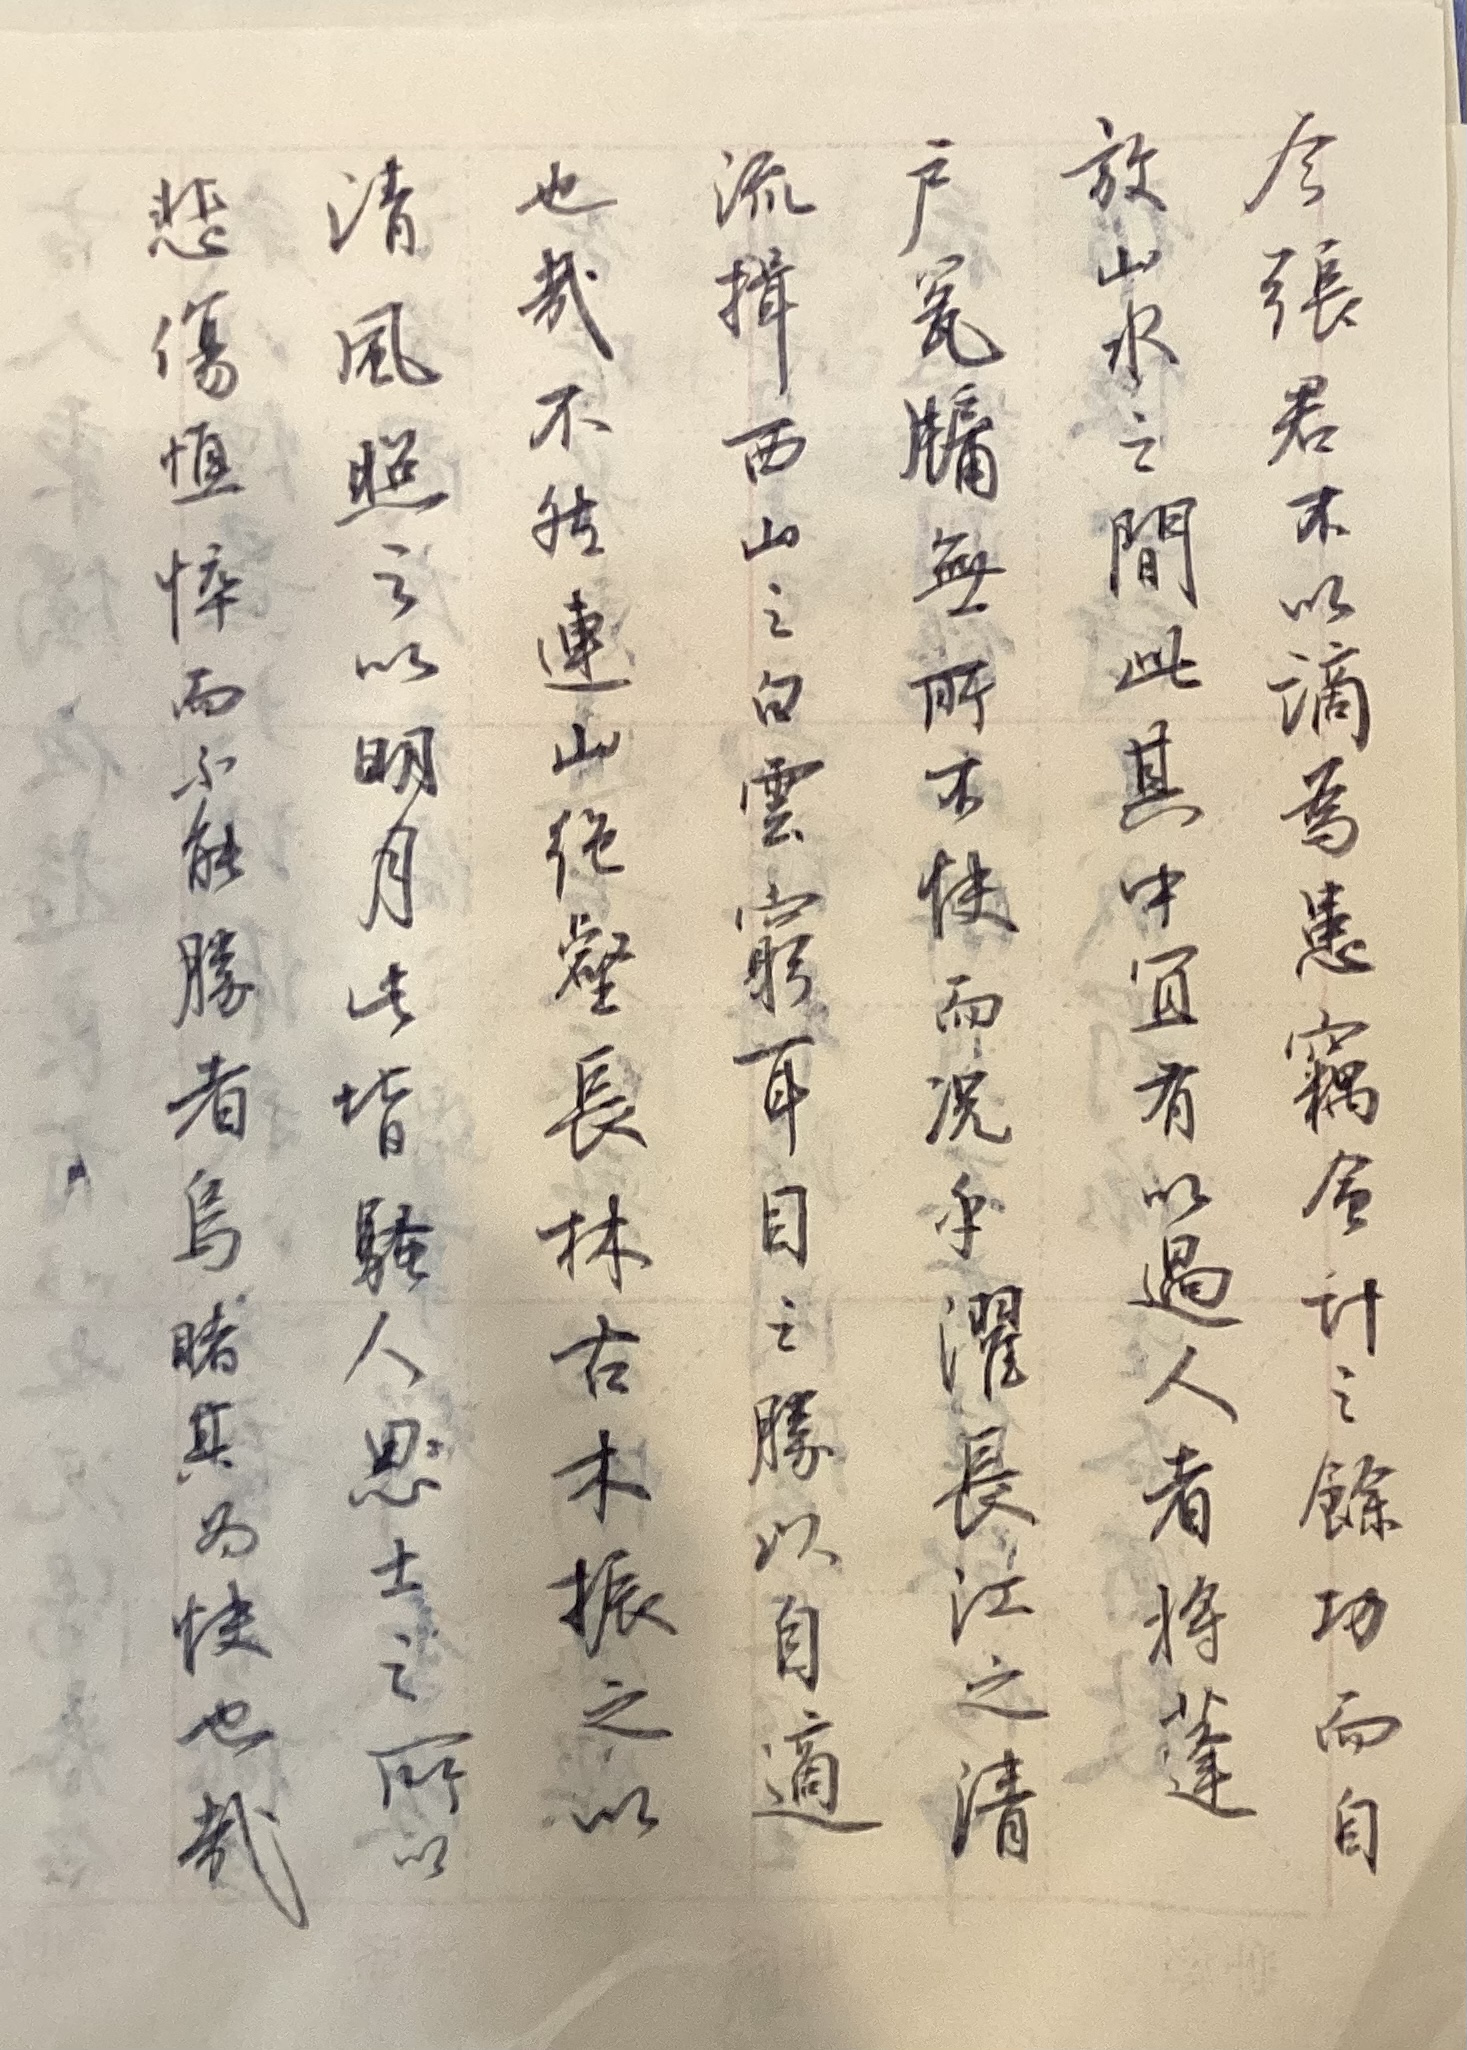 今張君不以謫為患竊會計之餘功而自
放山水之間此其中宜有以過人者將蓬
户瓮牖無所不快而況乎濯長江之清
流揖西山之白雲窮耳目之勝以自適
也哉不然連山絕壑長林古木振之以
清風照之以明月此皆騷人思士之所以
悲傷憔悴而不能勝者烏睹其為快也哉